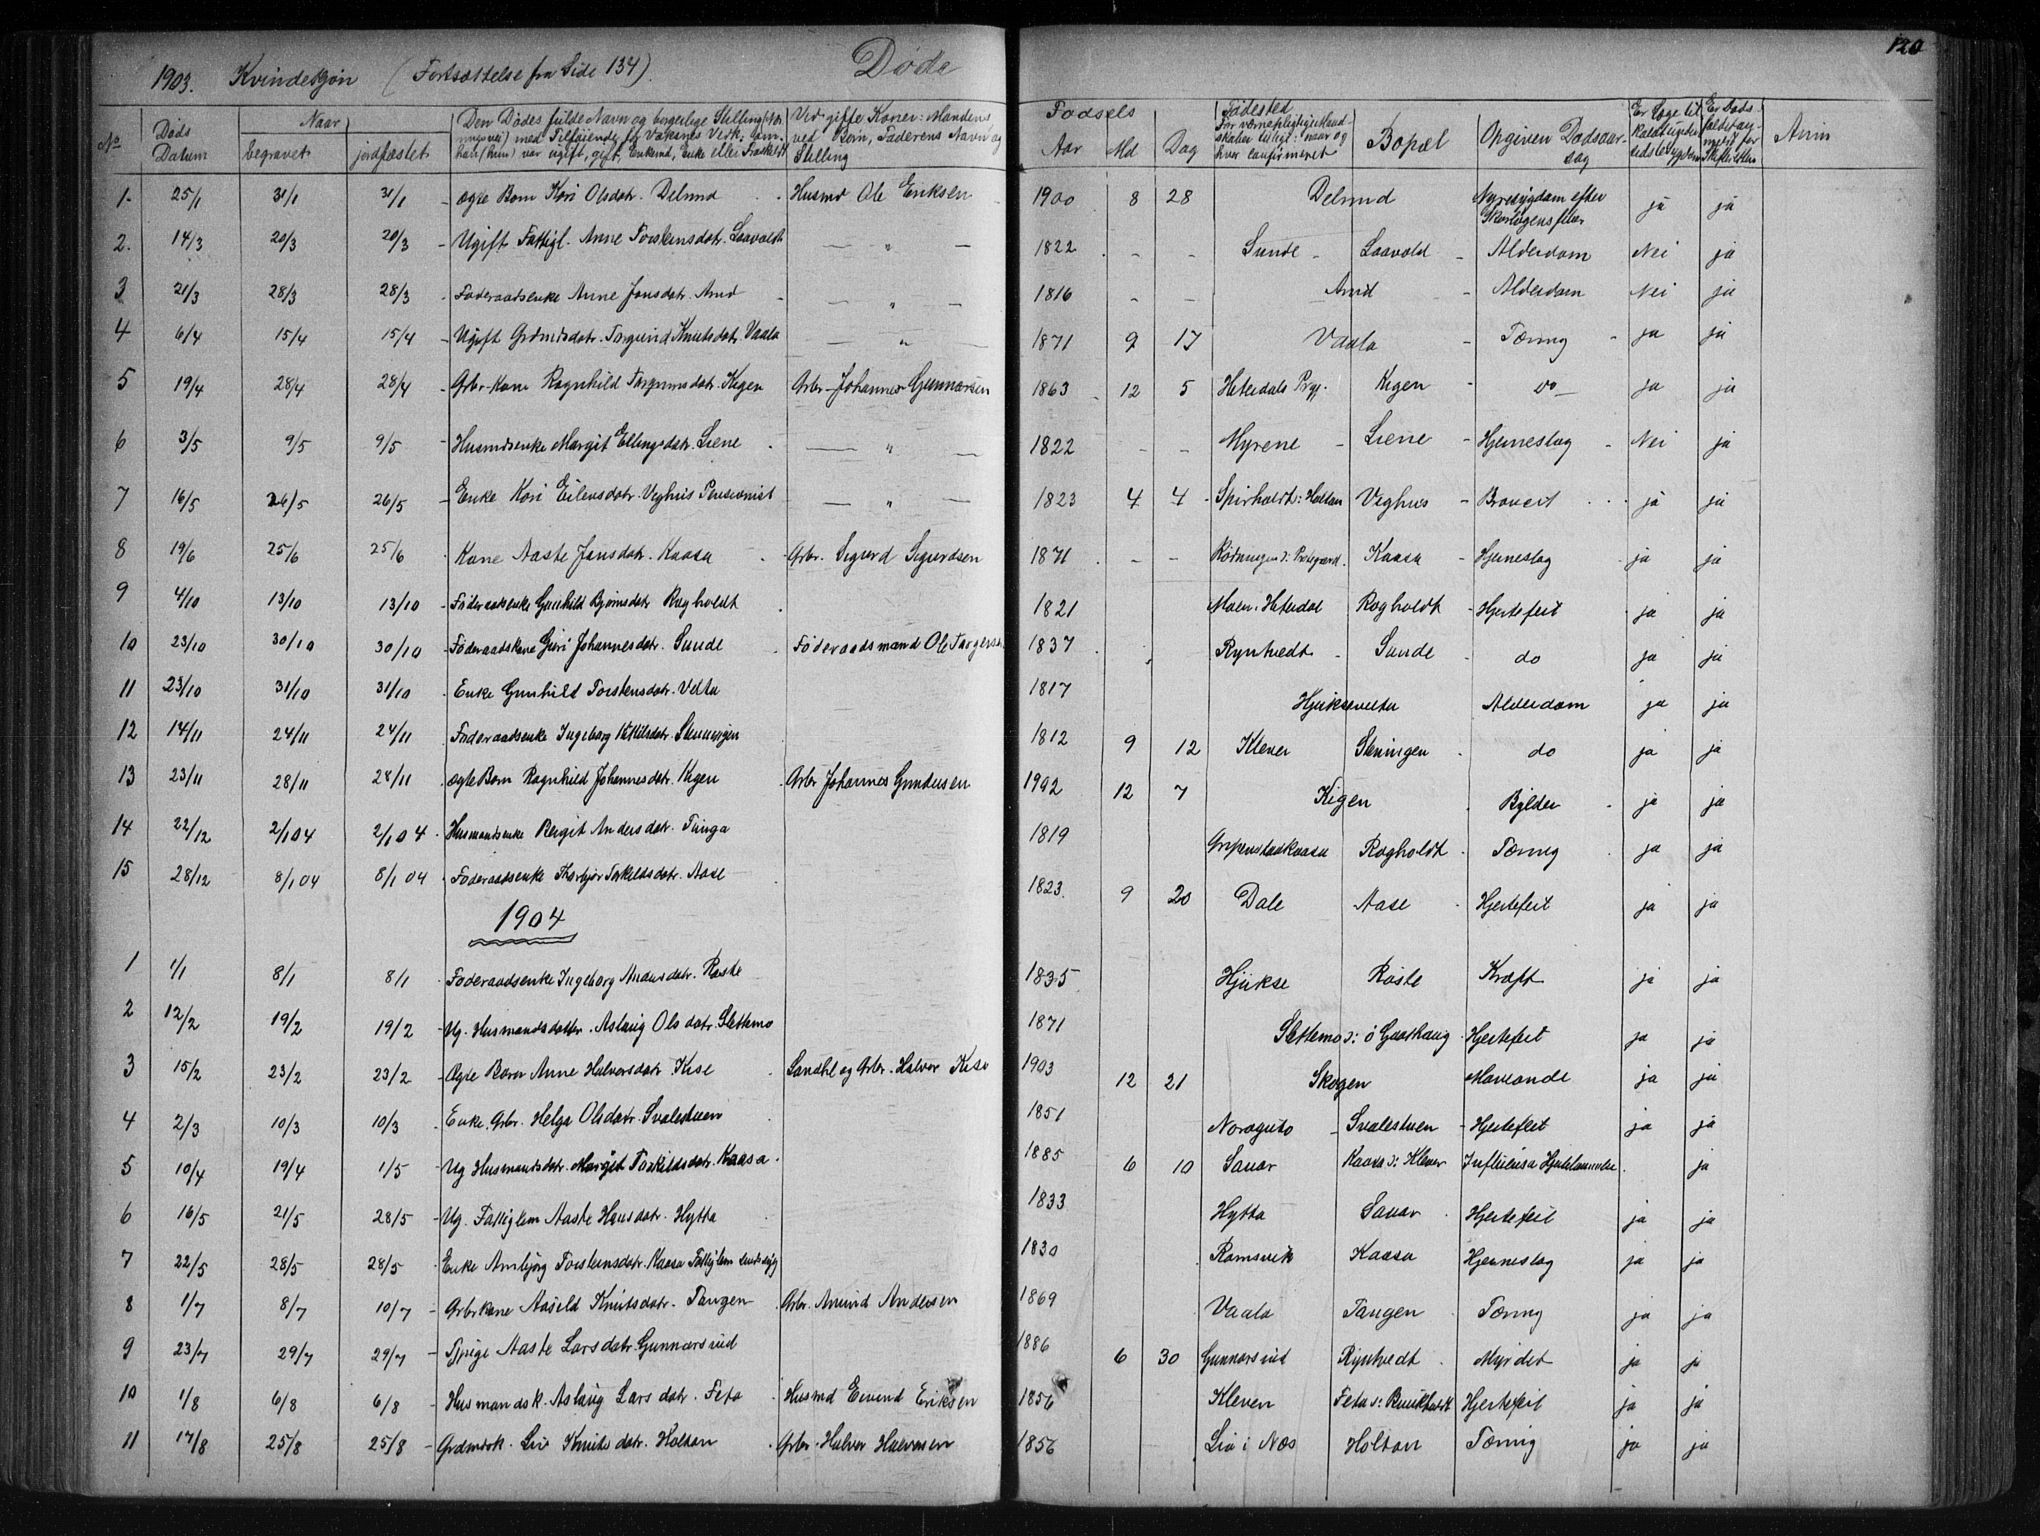 1903. Kvindekjøn (Fortsættelse fra Side 134). Døde 120
No Døds Datum Naar begravet jordfæstet Den Dødes fulde Navn og borgerlige Stilling Ved gifte Koner: Mandens, ved Børn, Faderens Navn og Stilling Fødsels Aar Md Dag Fødested Bopæl Opgiven Dødsaarsag Anm
1. 25/1 31/1 31/1 Ægte Barn Kari Olsdatr. Husmd Ole Eriksen 1900 8 28 Nyresygdom efter Skarlagensfeber ja ja
2. 14/3 20/3 20/3 Ugift Fattigl. Anne Torsteinsdatr. Laavald — " — 1822 - - Sunde - Laavald - Alderdom Nei ja
3 21/3 28/3 28/3 Føderaadsenke Anne Jonsdatr. — " — 1816 - - Alderdom Nei ja
4 6/4 15/4 15/4 Ugift Grdmdsdatr. Torgund Knutsdatr. Vaala — " — 1871 9 17 Vaala - Tæring - ja ja
5 19/4 28/4 28/4 Arbr-kone Ragnhild Kigen Arbr-Johannes Gunnarsen 1863 12 5 Hiterdals Prgj. Kigen - do - ja ja
6 3/5 9/5 9/5 Husmdsenke Margit Ellingsdatr. Liene — " — 1822 - - Myrene - Liene - Hjerneslag - Nei ja
7 16/5 26/5 26/5 Enke Kari Eilevsdatr. Veghus Pensionist — " — 1823 4 4 Veghus - ja ja
8 19/6 25/6 25/6 Kone Aaste Jonsdatr. Kaasa Arbr. Sigurd Sigurdsen 1871 - - Kaasa - Hjerneslag ja ja
9 4/10 13/10 13/10 Føderaadsenke Gunhild Bjørnsdatr Rogholdt 1821 Moen i Hiterdal Rogholdt - Hjertefeil ja ja
10 23/10 30/10 30/10 Føderaadskone Guri Johannesdatr. Sunde Føderaadsmand Ole 1837 Ryntvedt - Sunde - do ja ja
11 23/10 31/10 31/10 Enke Gunhild Torstensdatr. Velta 1817 Hjuksevelta Alderdom ja ja
12 14/11 24/11 24/11 Føderaadsenke Ingeborg Stenningen 1812 9 12 Klever Steningen do ja ja
13 23/11 28/11 28/11 Ægte Barn Ragnhild Johannesdatr. Kigen Arbr Johannes 1902 12 7 Kigen Bylder ja ja
14 22/12 2/1 04 2/1 04 Husmandsenke Bergit Andersdatr. Tinga 1819 Gripenstadkaasa Rogholdt Tæring ja ja
15 28/12 8/1 04 8/1 04 Føderaadsenke Thorbjør Torkildsdatr. Aase 1823 9 20 Dale Aase Hjertefeil ja ja
1904
1 1/1 8/1 8/1 Føderaadsenke Ingeborg Røste 1835 Hjukse Røste Kræft ja ja
2 12/2 19/2 19/2 Ug. Husmandsdatter. Aslaug Olsdatr. Slettemo 1871 Slettemo Hjertefeil ja ja
3 15/2 23/2 23/2 Ægte Barn Anne Halvorsdatr. Kise og Arbr. Halvor Kise 1903 12 21 Skogen ja ja
4 2/3 10/3 10/3 Enke. Arbr. Helga Olsdatr. Svalestuen 1851 Noraguto - Svalestuen - Hjertefeil ja ja
5 10/4 19/4 1/5 Ug Husmandsdatr. Margit Torkildsdatr. Kaasa 1885 6 10 Sauar Kaasa Klever Influensa ja
6 16/5 21/5 28/5 Ug. Fattiglem Aaste Hansdatr. Hytta 1833 Hytta Sauar Hjertefeil ja ja
7 22/5 28/5 28/5 Enke Anbjørg Torsteinsdatr. Kaasa Fattiglem 1830 Ramsvik Kaasa Hjerneslag ja ja
8 1/7 8/7 10/7 Arbrkone Aasild Knutsdatr. Tangen Arbr. Amund Andersen 1869 Vaala Tangen Tæring ja ja
9 23/7 29/7 29/7 Pige Aaste Larsdatr. Gunnarsrud 1886 6 30 Gunnarsrud Ryntvedt Myrdet ja ja
10 1/8 6/8 6/8 Husmandsk. Aslaug Larsdatr. Feta Husmd Eivend Eriksen 1856 Kleven Feta Hjertefeil ja ja
11 17/8 25/8 25/8 Grdmdsk. Liv Knutsdatr. Holtan Arbr. Halvor Halvorsen 1856 Lia i Næs Holtan Tæring ja ja